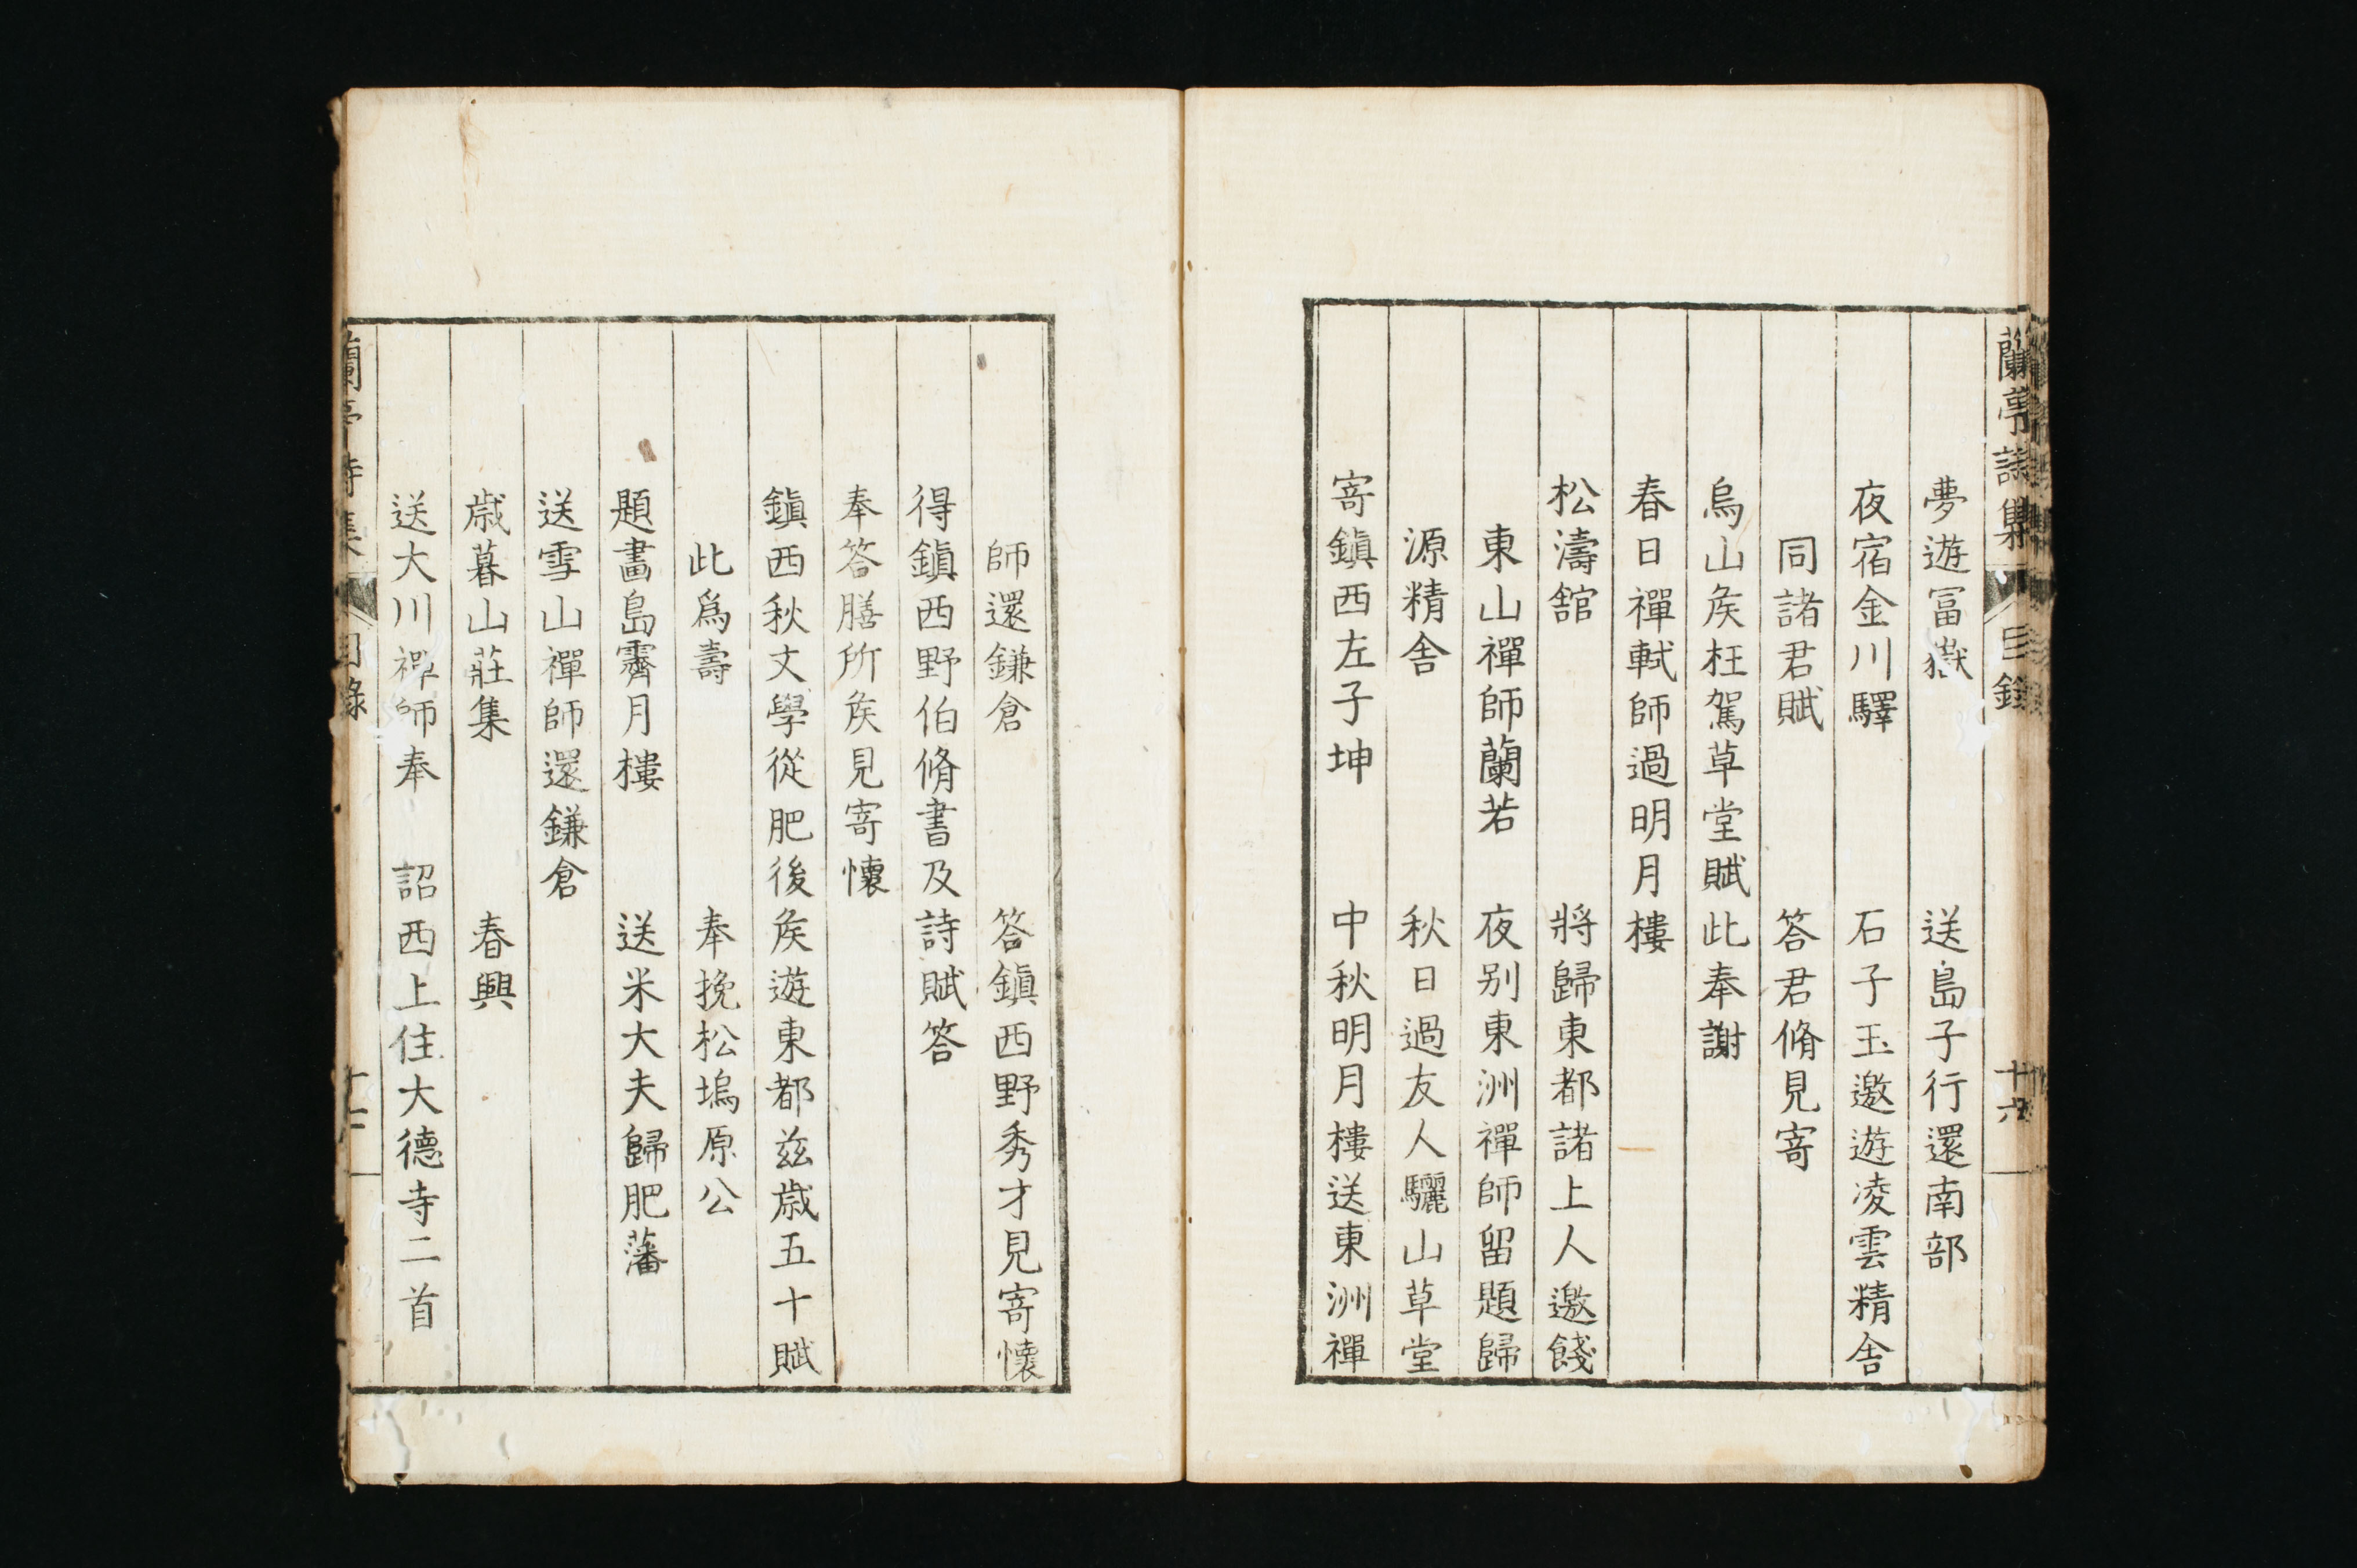 蘭亭詩集　目錄　十六
夢遊冨嶽　送島子行還南部
夜宿金川驛　石子玉邀遊凌雲精舎
同諸君賦　答君脩見寄
烏山矦枉駕草堂賦此奉謝
春日禪軾師過明月樓
松濤舘　將歸東都諸上人邀餞
東山禪師蘭若　夜別東洲禪師留題歸
源精舎　秋日過友人驪山草堂
寄鎭西左子坤　中秋明月樓送東洲禪
師還鎌倉　答鎭西野秀才見寄懷
得鎭西野伯脩書及詩賦答
奉答膳所矦見寄懷
鎭西秋文學從肥後矦遊東都茲歳五十賦
此爲壽　奉挽松塢原公
題畫島霽月樓　送米大夫歸肥藩
送雪山禪師還鎌倉
歳暮山莊集　春興
送大川禪師奉　詔西上住大德寺二首
蘭亭詩集　目錄